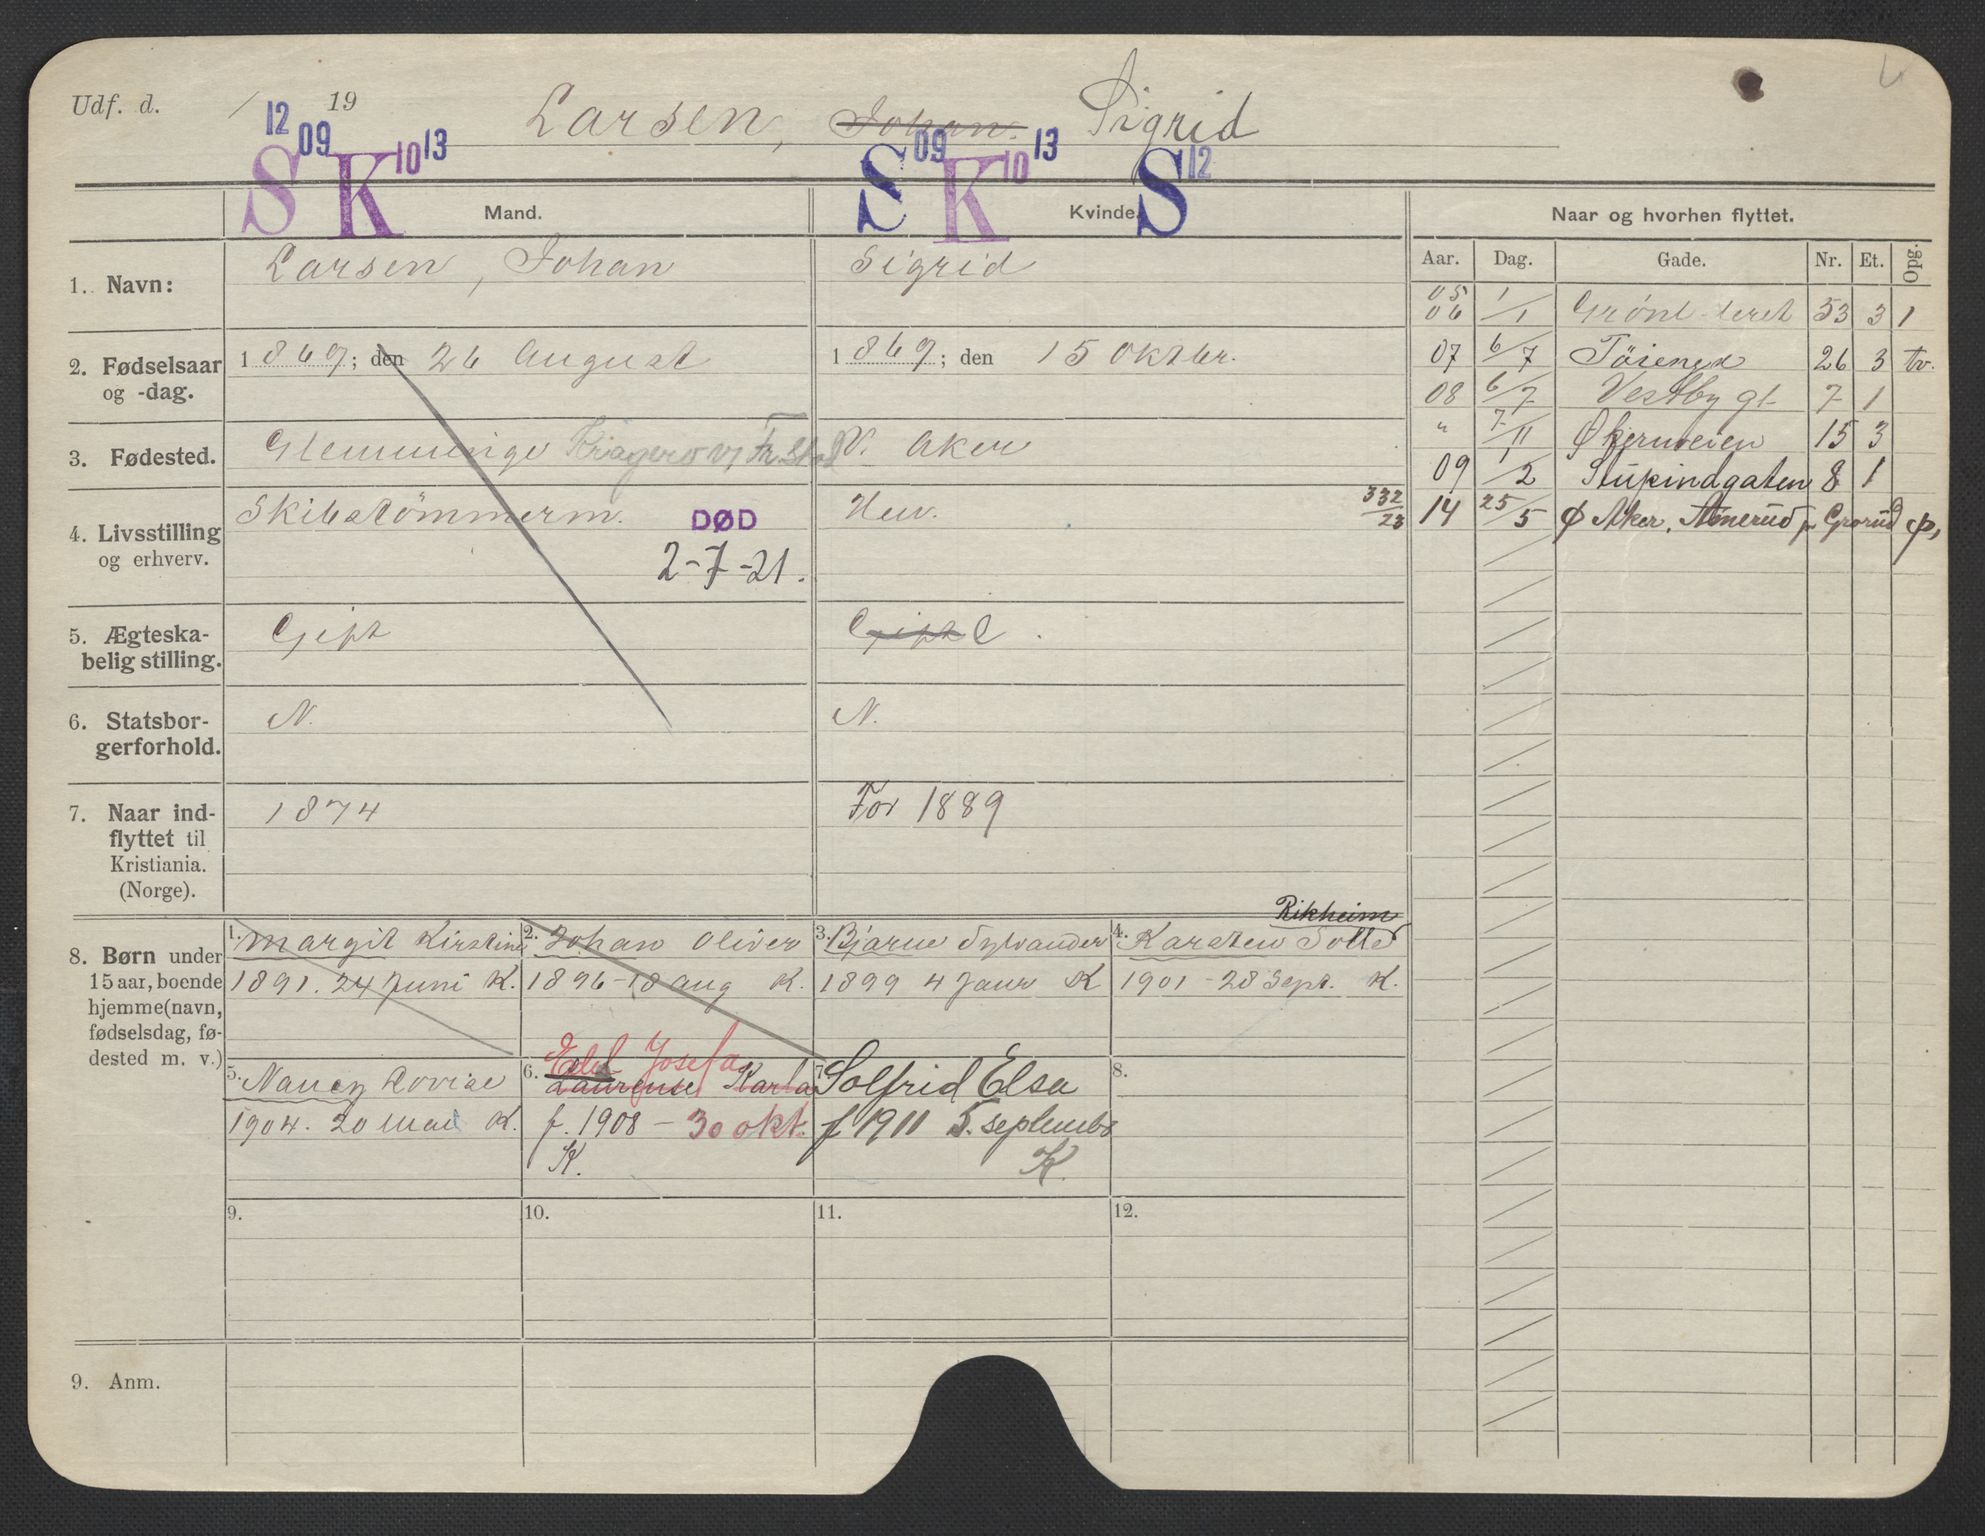 Udf. d. / 19
Larsen, Johan. Sigrid
12 09 10 13 09 10 13 12
S K S K S
Mand. Kvinde. Naar og hvorhen flyttet.
Aar. Dag. Gade. Nr. Et. Opg.
1. Navn: Larsen, Johan Sigrid
2. Fødselsaar og -dag. 1869; den 26 August 1869; den 15 Oktbr.
3. Fødested. Glemminge Kragerø v/ Fr.stad V. Aker
4. Livsstilling og erhverv. Skibstømmerm. Huv.
DØD
2-7-21.
5. Ægteskabelig stilling. Gift Gift E
6. Statsborgerforhold. N. N.
7. Naar indflyttet til Kristiania. (Norge). 1874 Før 1889
05
06 1/1 Grønl.leret 53 3 1
07 6/7 Tøieng 26 3 tv.
08 6/7 Vestby gt 7 1
" 7/11 Økernveien 15 3
09 1/2 Stupindgaten 8 1
332/23 14 25/5 Ø Aker, Amerud p Grorud
8. Børn under 15 aar, boende hjemme (navn, fødselsdag, fødested m. v.)
1. Margit Kirstine
1891. 24 Juni K.
2. Johan Oliver
1896-18 Aug K.
3. Bjarne Sylvander
1899 4 Janr K
Rikheim
4. Karsten
1901-28 Sept. K.
5. Nancy Lovise
1904. 20 Mai K.
Josefa
6. Laurense Karla
f. 1908 - 30 okt.
K.
7. Solfrid Elsa
f 1911 5. septembr
K.
8.
9. 10. 11. 12.
9. Anm.